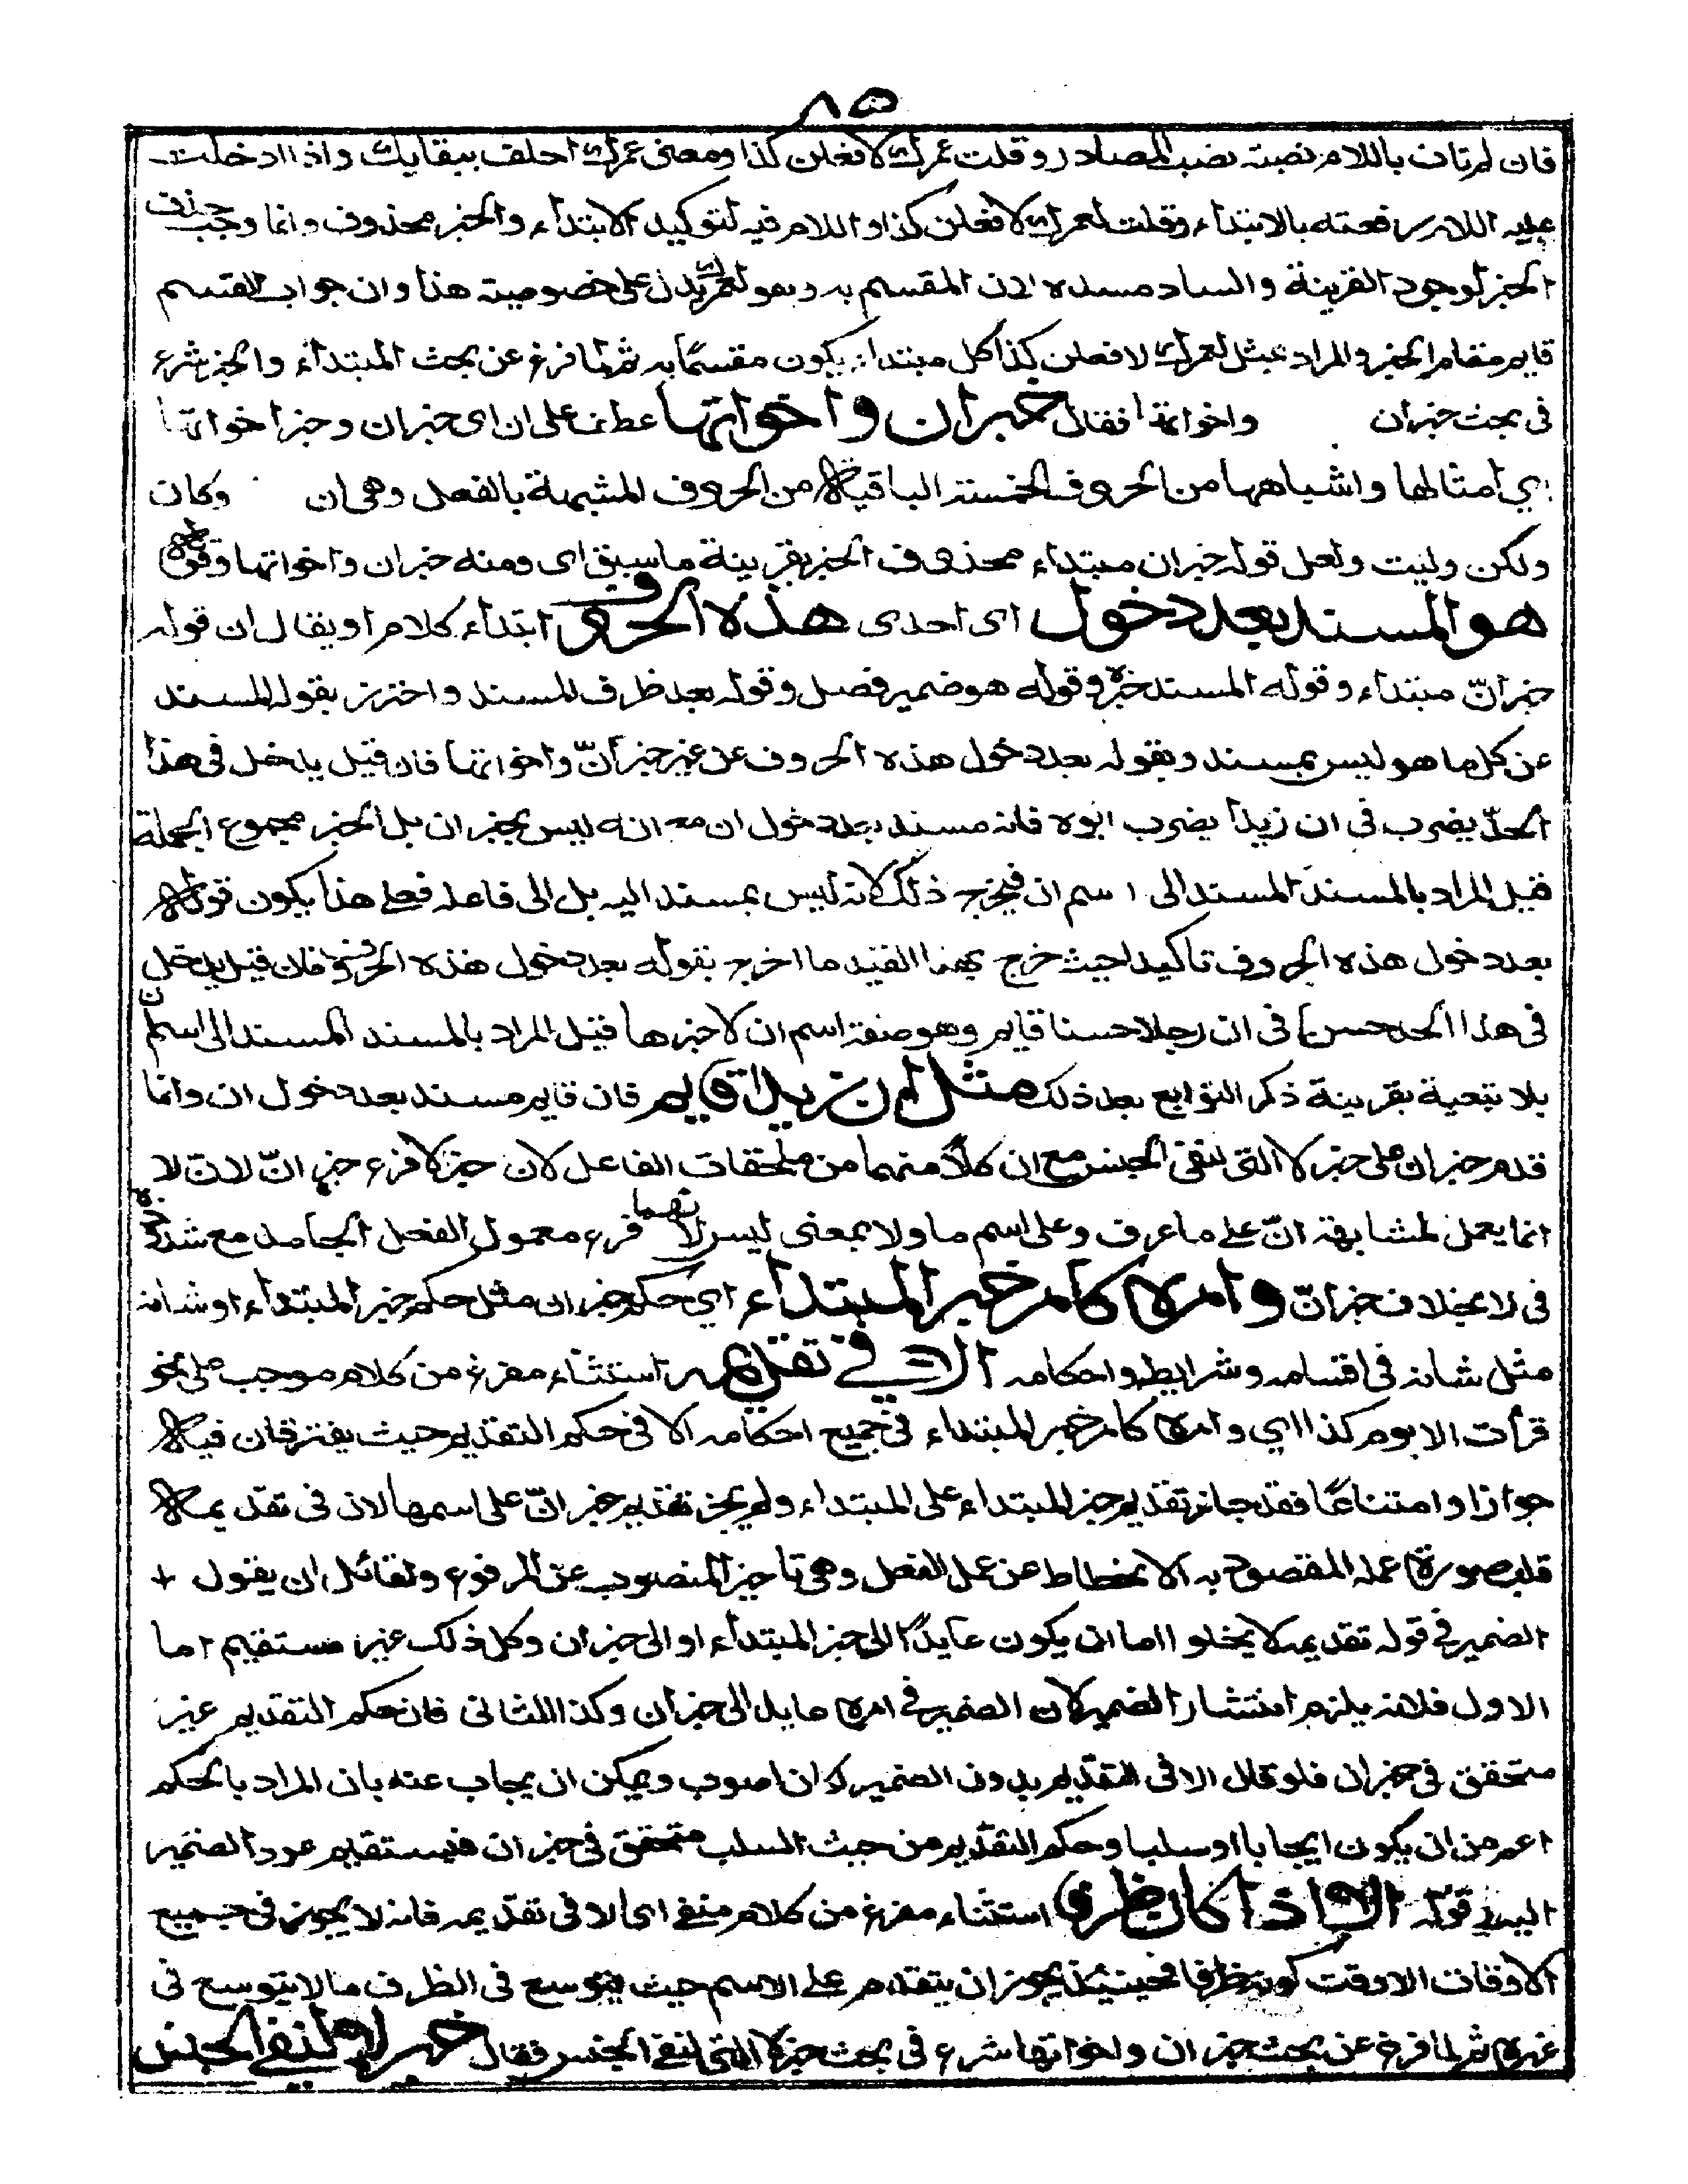 ٨٥
فان لم تات باللام نصبته نصب المصادر وقلت عمرك لافعلن كذا ومعنى عمرك احلف ببقايك واذا ادخلت
عليه اللام رفعته بالابتداء وقلت لعمرك لافعلن كذا واللام فيه لتوكيد الابتداء والخبر محذوف وانما وجب حذف
الخبر لوجود القرينة والساد مسده اذن المقسم به وهو لعمرك يدل على خصوصيته هذا وان جواب القسم
قايم مقام الخبر والمراد بمثل لعمرك لافعلن كذا كل مبتداء يكون مقسمًا به ثم لما فرغ عن بحث المبتداء والخبر شرع
فى بحث خبران واخواتها فقال خبران واخواتها عطف على ان اى خبران وخبر اخواتها
اي امثالها واشباهها من الحروف الخمسة الباقية من الحروف المشبهة بالفعل وهى ان وكان
ولكن وليت ولعل قوله خبران مبتداء محذوف الخبر بقرينة ما سبق اى ومنه خبران واخواتها وقوله
هو المسند بعد دخول اى احدى هذه الحروف ابتداء كلام او يقال ان قوله
خبرانّ مبتداء وقوله المسند خبره وقوله هو ضمير فصل وقوله بعد ظرف للمسند واحترز بقوله المسند
عن كل ما هو ليس بمسند وبقوله بعد دخول هذه الحروف عن غير خبر انّ واخواتها فان قيل يدخل فى هذا
الحدّ يضرب فى ان زيدا يضرب ابوه فانه مسند بعد دخول ان مع انه ليس بخبر ان بل الخبر مجموع الجملة
قيل المراد بالمسند المسند الى اسم ان فيخرج ذلك لانه ليس بمسند اليه بل الى فاعله فعلى هذا يكون قوله
بعد دخول هذه الحروف تاكيدا حيث خرج بهذا القيد ما اخرج بقوله بعد دخول هذه الحروف فان قيل يدخل
فى هذا الحد حسن فى ان رجلا حسنا قايم وهو صفة اسم ان لا خبرها قيل المراد بالمسند المسند الى اسم ان
بلا تبعية بقرينة ذكر التوابع بعد ذلك مثل ان زيدا قايم فان قايم مسند بعد دخول ان وانما
قدم خبران على خبر لا التى لنفى الجنس مع ان كلاً منهما من ملحقات الفاعل لان خبر لا فرع خبر انّ لان لا
انما يعمل لمشابهة انّ على ما عرف وعلى اسم ما ولا بمعنى ليس لانهما فرع معمول الفعل الجامد مع شذوذه
فى لا بخلاف خبر انّ وامره كامر خبر المبتداء اي حكم خبر ان مثل حكم خبر المبتداء او شانه
مثل شانه فى اقسامه وشرايطه واحكامه الا في تقديمه استثناء مفرغ من كلام موجب على نحو
قرأت الا يوم كذا اي وامره كامر خبر المبتداء فى جميع احكامه الا فى حكم التقديم حيث يفترقان فيه
جوازا وامتناعًا فقد جاز تقديم خبر المبتداء على المبتداء ولم يجز تقديم خبر انّ على اسمها لان فى تقديمه
قلب صورة عمله المقصود به الانحطاط عن عمل الفعل وهى تاخير المنصوب عن المرفوع ولقائل ان يقول
الضمير في قوله تقديمه لا يخلو اما ان يكون عايدًا الى خبر المبتداء او الى خبر ان وكل ذلك غير مستقيم اما
الاول فلانه يلزم انتشار الضمير لان الضمير في امره عايد الى خبر ان وكذا الثانى فان حكم التقديم غير
متحقق فى خبر ان فلو قال الا فى التقديم بدون الضمير كان اصوب ويمكن ان يجاب عنه بان المراد بالحكم
اعم من ان يكون ايجابا او سلبا وحكم التقديم من حيث السلب متحقق فى خبر ان فيستقيم عود الضمير
اليه في قوله الا اذا كان ظرفا استثناء مفرغ من كلام منفى اى الا فى تقديمه فانه لا يجوز فى جميع
الاوقات الا وقت كونه ظرفا فحينئذ يجوز ان يتقدم على الاسم حيث يتوسع فى الظرف ما لا يتوسع فى
غيره ثم لما فرغ عن بحث خبر ان واخواتها شرع فى بحث خبر لا التى لنفى الجنس فقال خبر لا لنفي الجنس